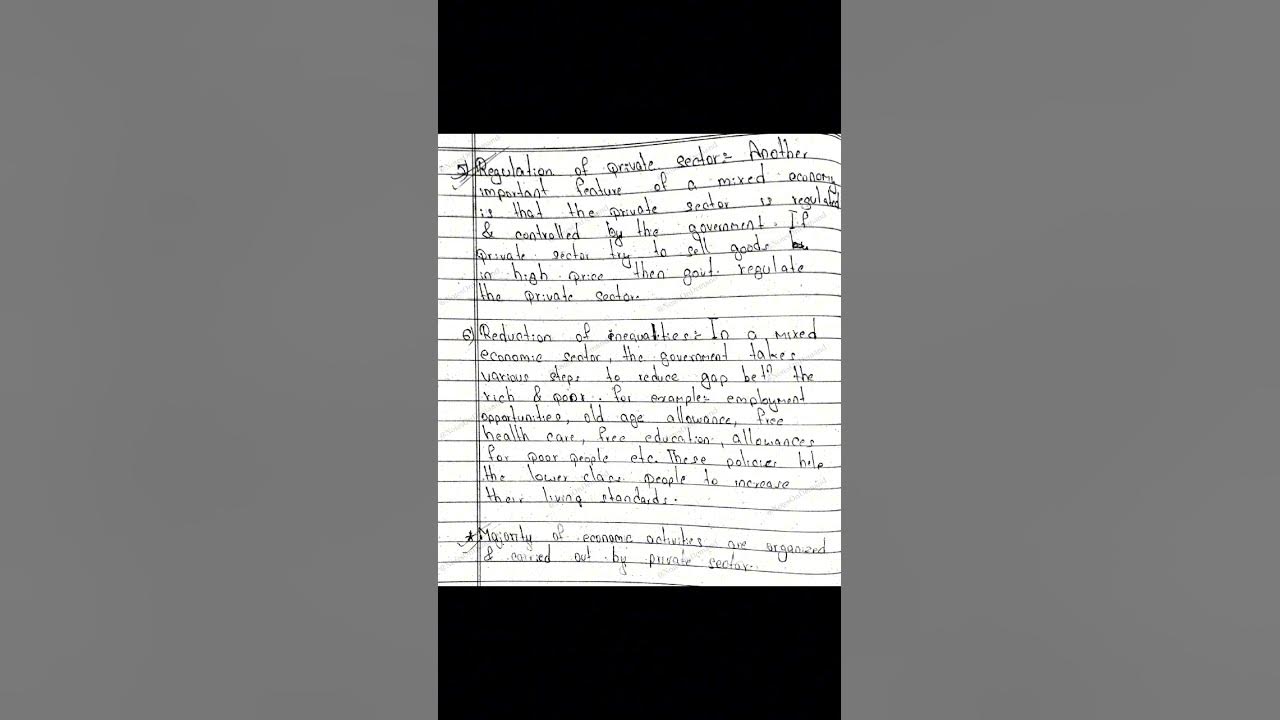 5) Regulation of private sector:- Another
important feature of a mixed economy
is that the private sector is regulated
& controlled by the government. If
private sector try to sell goods
in high price then govt. regulate
the private sector.
6) Reduction of inequalities:- In a mixed
economic sector, the government takes
various steps to reduce gap betn the
rich & poor. for example:- employment
opportunities, old age allowance, free
health care, free education, allowances
for poor people etc. These policies help
the lower class people to increase
their living standards.
* Majority of economic activities are organized
& carried out by private sector.